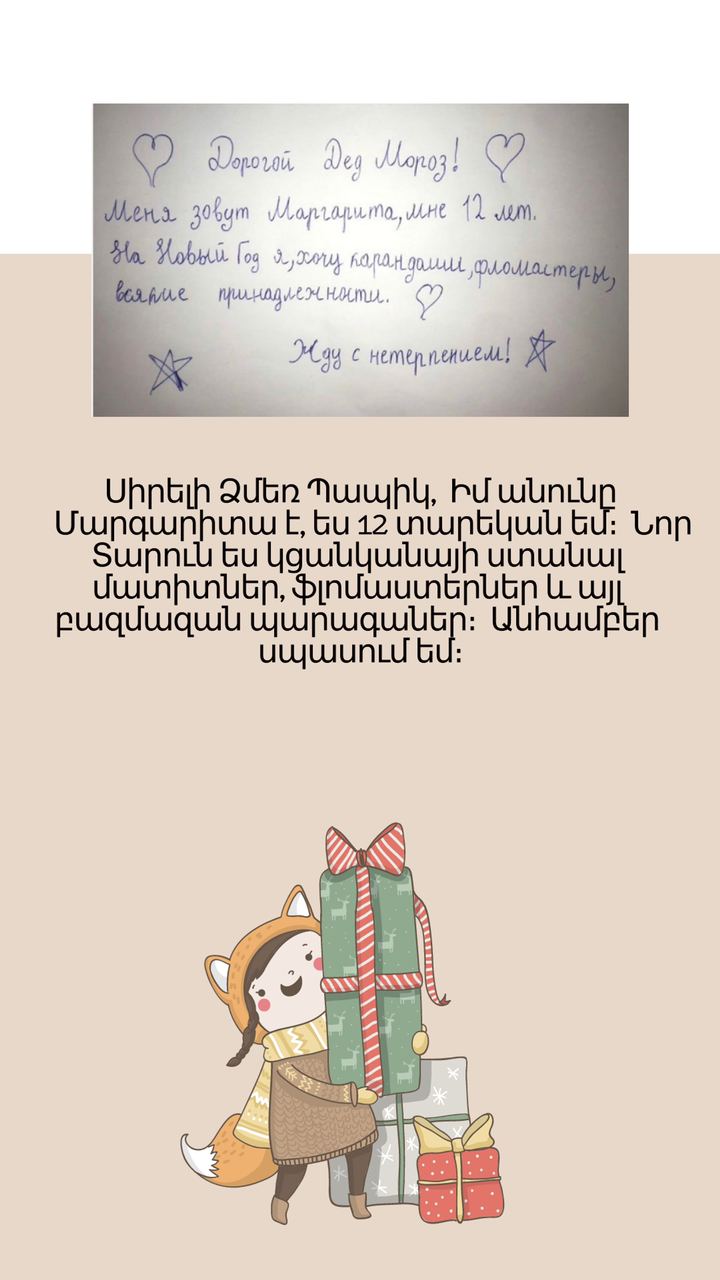 Дорогой Дед Мороз!
Меня зовут Маргарита, мне 12 лет.
На Новый Год я, хочу карандаши, фломастеры,
всякие принадлежности.
Жду с нетерпением!
Սիրելի Ձմեռ Պապիկ, Իմ անունը
Մարգարիտա է, ես 12 տարեկան եմ։ Նոր
Տարուն ես կցանկանայի ստանալ
մատիտներ, ֆլոմաստերներ և այլ
բազմազան պարագաներ։ Անհամբեր
սպասում եմ։